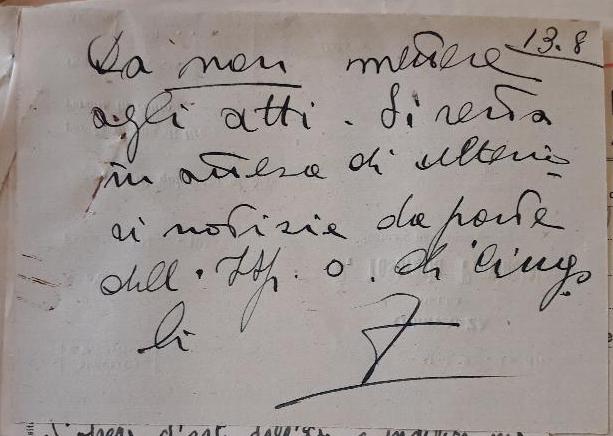 13.8
Da non mettere
agli atti. Si resta
in attesa di ulterio-
ri notizie da parte
dell'Isp. o. di Cingo-
li